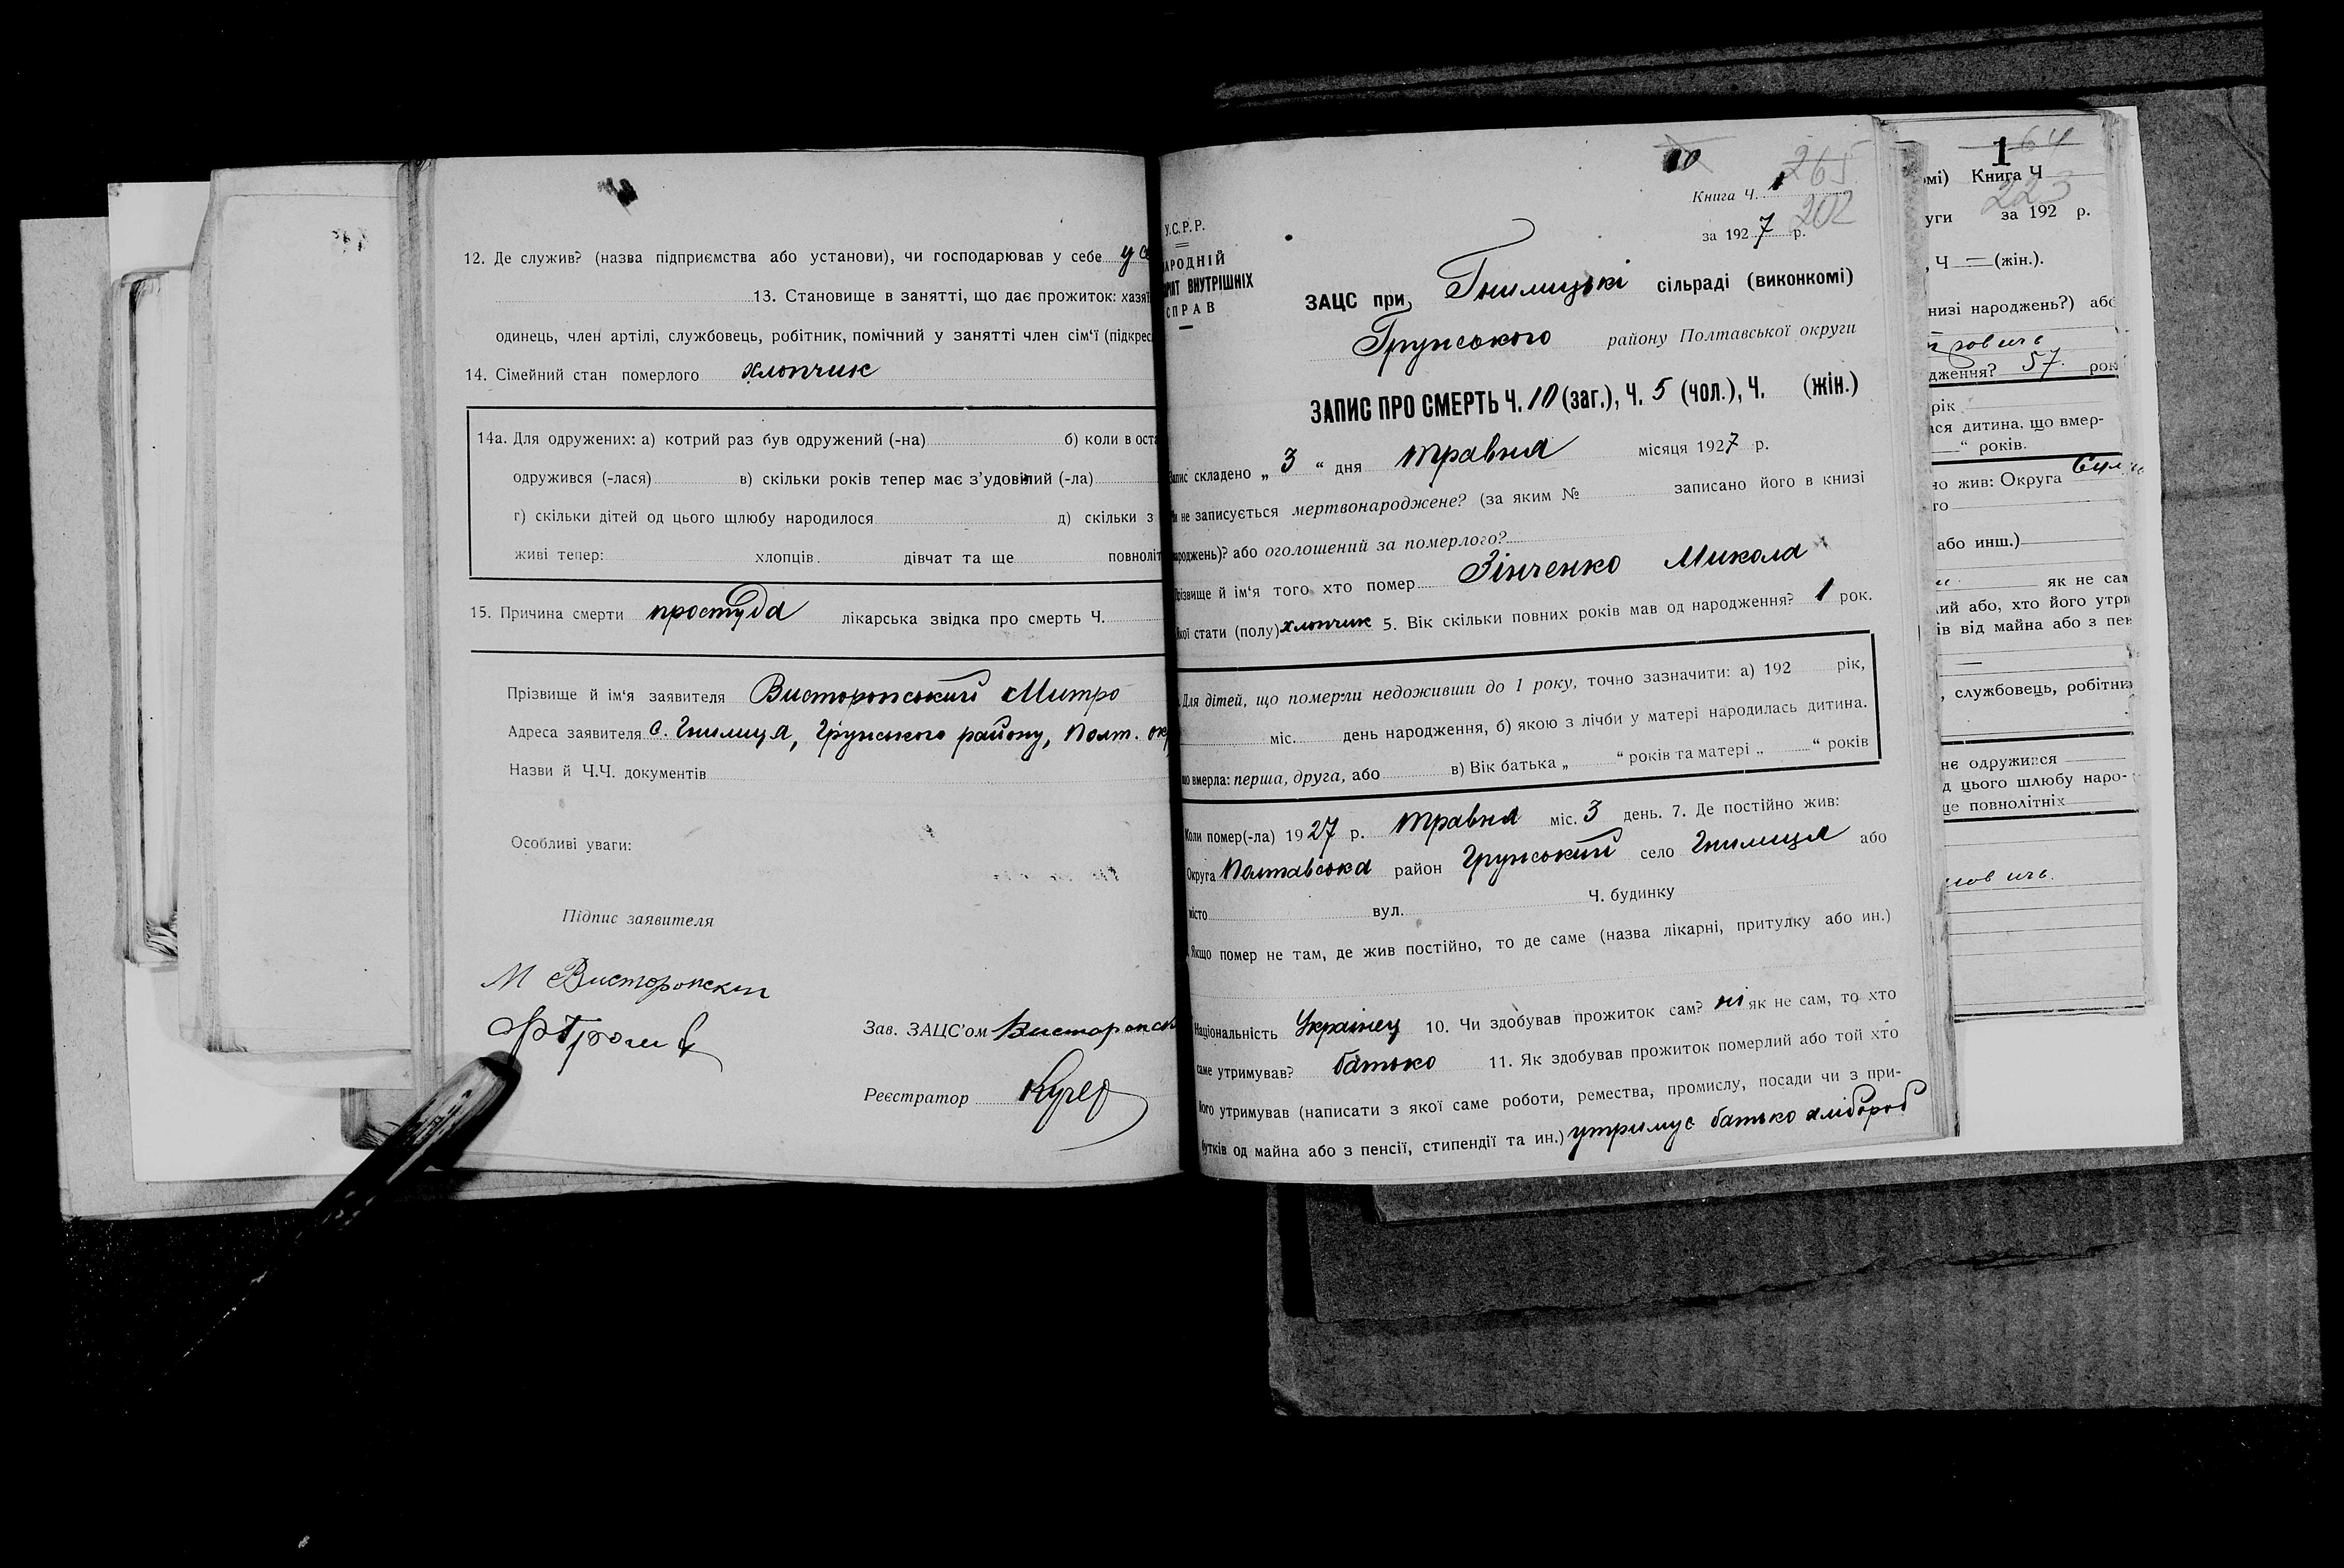 12. Де служив? (назва підприємства або установи), чи господарював у себе у се
13. Становище в занятті, що дає прожиток: хазяї
одинець, член артілі, службовець, робітник, помічний у занятті член сім'ї (підкрес
14. Сімейний стан померлого хлопчик
14а. Для одружених: а) котрий раз був одружений (-на) б) коли в оста
одружився (-лася) в) скільки років тепер має з'удовілий (-ла)
г) скільки дітей од цього щлюбу народилося д) скільки з
живі тепер: хлопців дівчат та ще повноліт
15. Причина смерти простуда лікарська звідка про смерть Ч.
Прізвище й ім'я заявителя Висторопський Митро
Адреса заявителя с. Гнилиця, Грунського району, Полт. ок
Назви й Ч.Ч. документів
Особливі уваги:
Підпис заявителя
М Висторопский
Зав. ЗАЦС'ом Висторопсь
Реєстратор Кучер
10
265
Книга Ч. 1
202
за 1927 р.
У.С.Р.Р.
АРОДНІЙ
АРІЯТ ВНУТРІШНІХ
СПРАВ
ЗАЦС при Гнилицькі сільраді (виконкомі)
Грунського району Полтавської округи
ЗАПИС ПРО СМЕРТЬ Ч. 10 (заг.), Ч. 5 (чол.), Ч. (жін.)
Запис складено „ 3 “ дня травня місяця 1927 р.
и не записується мертвонароджене? (за яким № записано його в книзі
народжень)? або оголошений за померлого?
різвище й ім'я того хто помер Зінченко Микола
кої стати (полу) хлопчик 5. Вік скільки повних років мав од народження? 1 рок.
Для дітей, що померли недоживши до 1 року, точно зазначити: а) 192 рік,
міс. день народження, б) якою з лічби у матері народилась дитина.
що вмерла: перша, друга, або в) Вік батька „ “ років та матері „ “ років
Коли помер(-ла) 1927 р. травня міс. 3 день. 7. Де постійно жив:
Округа Полтавська район Грунський село Гнилиця або
місто вул. Ч. будинку
Якщо помер не там, де жив постійно, то де саме (назва лікарні, притулку або ин.)
Національність Українец 10. Чи здобував прожиток сам? ні як не сам, то хто
саме утримував? батько 11. Як здобував прожиток померлий або той хто
його утримував (написати з якої саме роботи, ремества, промислу, посади чи з при-
бутків од майна або з пенсії, стипендії та ин.) утримує батько хлібороб
1 64
омі) Книга Ч
223
уги за 192 р.
, Ч — (жін.).
низі народжень?) або
дження? 57 рок
рік
ася дитина, що вмер-
“ років.
но жив: Округа
го
або инш.)
як не сам
ий або, хто його утри
ів від майна або з пен
, службовець, робітни
не одружився
д цього шлюбу наро-
ще повнолітніх